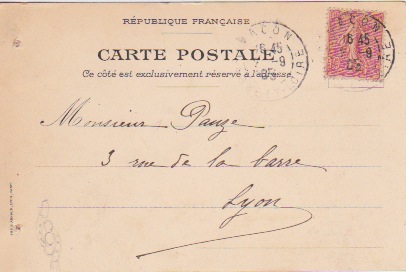 RÉPUBLIQUE FRANÇAISE
CARTE POSTALE
Ce côté est exclusivement réservé à l'adresse
MACON
16 45
9
05
LOIRE
MACON
16 45
9
05
LOIRE
Monsieur Panze
3 rue de la barre
Lyon